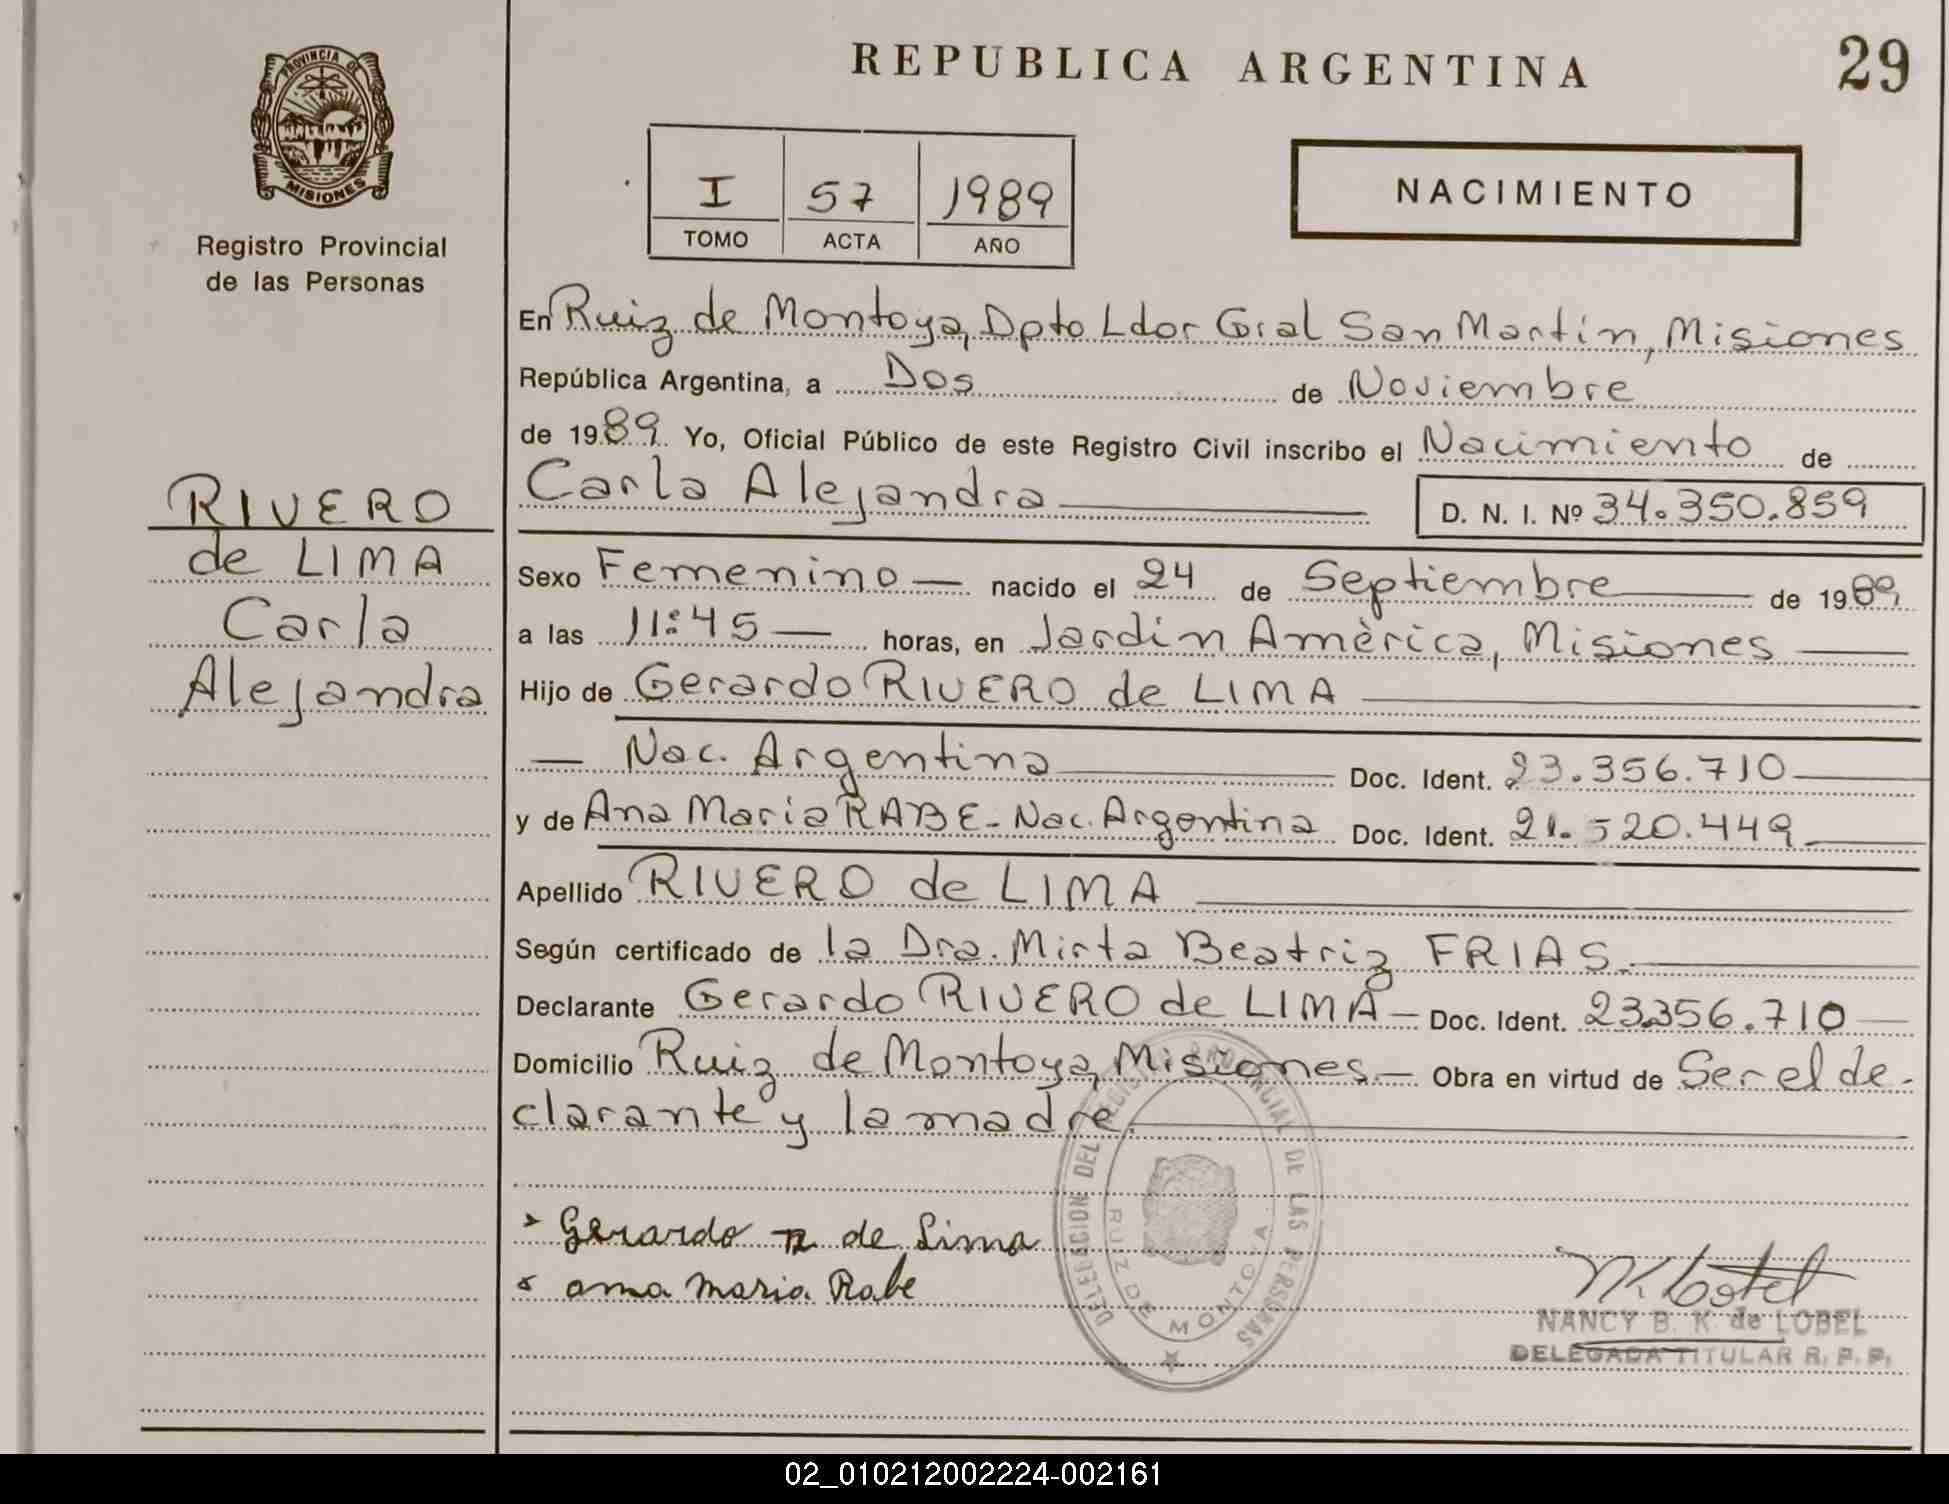 PROVINCIA DE
MISIONES
Registro Provincial
de las Personas
RIVERO
de LIMA
Carla
Alejandra
REPUBLICA ARGENTINA
29
I 57 1989
TOMO ACTA AÑO
NACIMIENTO
En Ruiz de Montoya, Dpto Ldor Gral San Martín, Misiones
República Argentina, a Dos de Noviembre
de 1989. Yo, Oficial Público de este Registro Civil inscribo el Nacimiento de
Carla Alejandra
D. N. I. Nº 34.350.859
Sexo Femenino — nacido el 24 de Septiembre de 1989
a las 11:45 — horas, en Jardín Amèrica, Misiones
Hijo de Gerardo RIVERO de LIMA
— Nac. Argentina Doc. Ident. 23.356.710
y de Ana Maria RABE - Nac. Argentina Doc. Ident. 21.520.449
Apellido RIVERO de LIMA
Según certificado de la Dra. Mirta Beatriz FRIAS.
Declarante Gerardo RIVERO de LIMA — Doc. Ident. 23.356.710
Domicilio Ruiz de Montoya, Misiones. — Obra en virtud de Ser el de-
clarante y la madre.
DELEGACION DEL REGISTRO PROVINCIAL DE LAS PERSONAS
RUIZ DE MONTOYA
Gerardo R de Lima
ana maria Rabe
NANCY B. K de LOBEL
DELEGADA TITULAR R. P. P.
02_010212002224-002161